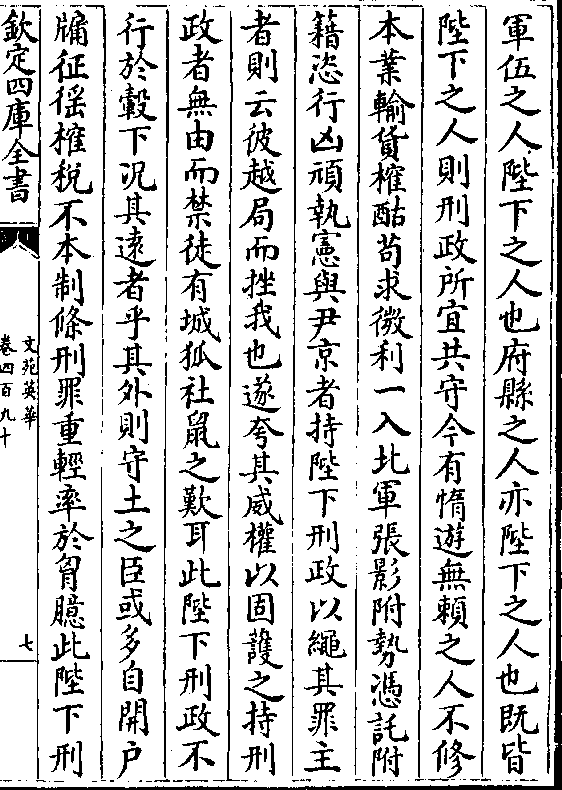 軍伍之人陛下之人也府縣之人亦陛下之人也既皆
陛下之人則刑政所宜共守今有惰遊無頼之人不修
本業輸貨榷酤苟求微利一入北軍張影附勢憑託附
籍恣行凶頑執憲與尹京者持陛下刑政以繩其罪主
者則云彼越局而挫我也遂夸其威權以固護之持刑
政者無由而禁徒有城狐社鼠之歎耳此陛下刑政不
行於轂下况其逺者乎其外則守土之臣或多自開户
牖征徭榷税不本制條刑罪重輕率於胷臆此陛下刑
欽定四庫全書
文苑英華
卷四百九十
七